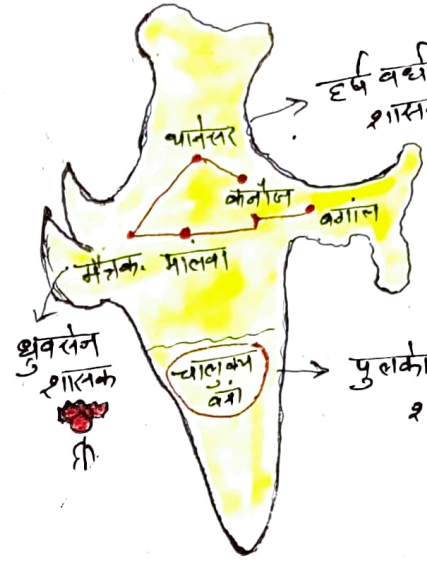 हर्ष वर्ध
शास
थानेसर
कनौज
बगांल
मैत्रक. मालवा
ध्रुवसेन
शासक
चालुक्य
वंश
पुलके
श